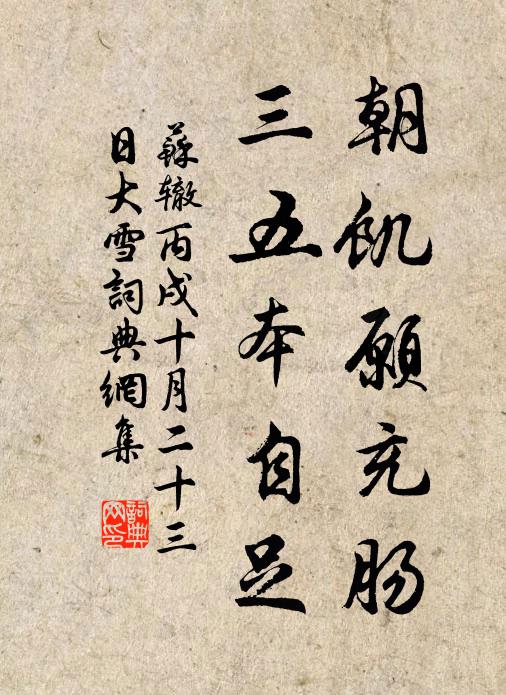 朝飢願充腸
三五本自足
蘇辙丙戌十月二十三
日大雪詞典網集
詞典
网印